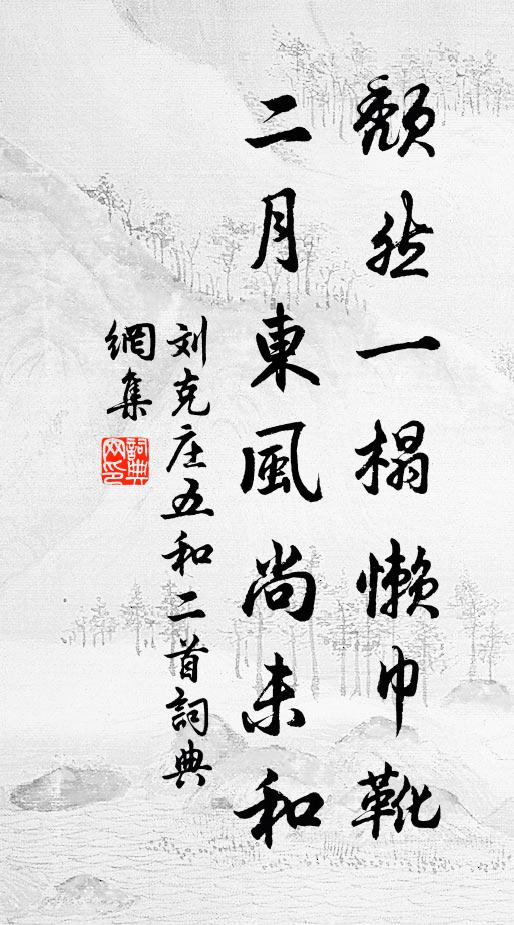 颓然一榻懒巾靴
二月東風尚未和
刘克庄五和二首詞典
網集
詞典網印